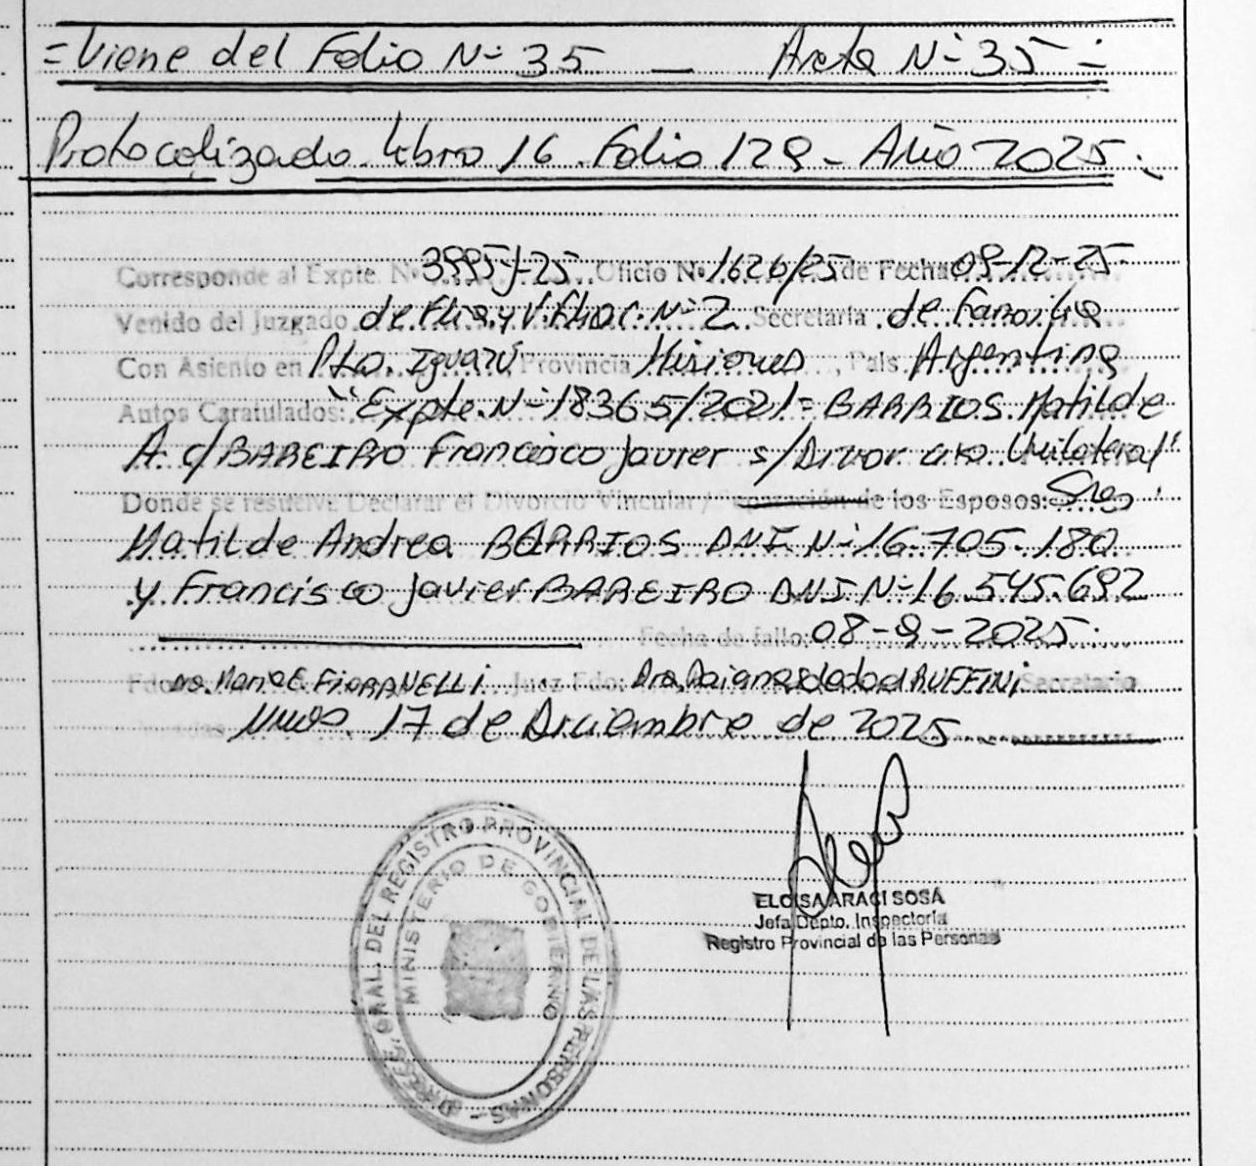 = Viene del Folio Nº 35 — Acta Nº 35 =
Protocolizado Libro 16 Folio 129 - Año 2025.
Corresponde al Expte. Nº 3995-J-25 Oficio Nº 1626/25 de Fecha 09-12-25
Venido del Juzgado de Flia. y V. Fliar. Nº 2 Secretaría de Familia
Con Asiento en Pto. Iguazú, Provincia Misiones, País Argentina
Autos Caratulados: "Expte. Nº 18365/2021 = BARRIOS Matilde
A. c/ BAREIRO Francisco Javier s/ Divorcio Unilateral"
Donde se resuelve Declarar el Divorcio Vincular / Separación de los Esposos: Sres
Matilde Andrea BARRIOS DNI Nº 16.705.180
y Francisco Javier BAREIRO DNI Nº 16.545.692
Fecha de fallo: 08-9-2025.
Fdo: FIORANELLI Juez Fdo: Dra. RUFFINI Secretario
17 de Diciembre de 2025
ELOISA ARACI SOSA
Jefa Depto. Inspectoría
Registro Provincial de las Personas
GRAL. DEL REGISTRO PROVINCIAL DE LAS PERSONAS
MINISTERIO DE GOBIERNO